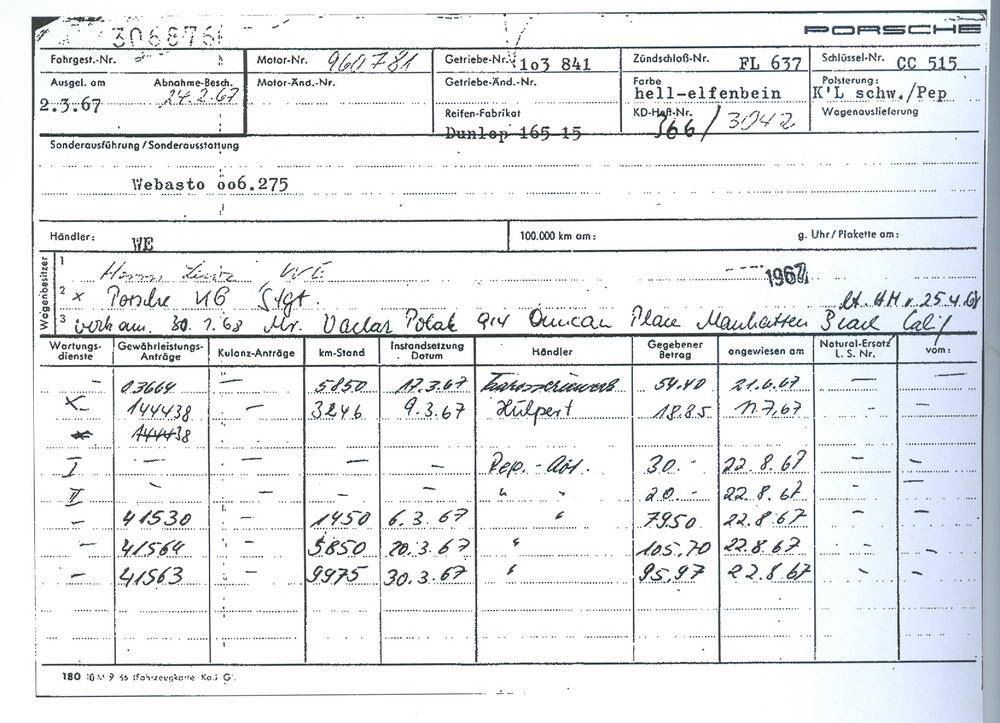 306876
PORSCHE
Fahrgest.-Nr. Motor-Nr. 960781 Getriebe-Nr. 1o3 841 Zündschloß-Nr. FL 637 Schlüssel-Nr. CC 515
Ausgel. am Abnahme-Besch. Motor-Änd.-Nr. Getriebe-Änd.-Nr. Farbe Polsterung:
2.3.67 24.2.67 hell-elfenbein K'L schw./Pep
Reifen-Fabrikat KD-Heft-Nr. Wagenauslieferung
Dunlop 165-15 366/3042
Sonderausführung/Sonderausstattung
Webasto oo6.275
Händler: WE 100.000 km am: g. Uhr/Plakette am:
Wagenbesitzer
1 Herrn WE 1967
2 x Porsche KG Stgt. lt. H.M. v. 25.4.68
3 verk am. 30.1.68 Mr. Vaclav Polak 914 Duncan Place Manhatten Beach Calif
Wartungsdienste Gewährleistungs-Anträge Kulanz-Anträge km-Stand Instandsetzung Datum Händler Gegebener Betrag angewiesen am Natural-Ersatz L. S. Nr. vom:
– 03664 – 5850 17.3.67 54.40 21.6.67 – –
X– 144438 – 3246 9.3.67 Hülpert 18.85 11.7.67 – –
144438
I – – – – Rep.-Abt. 30.- 22.8.67 – –
II – – – – " " 20.- 22.8.67 – –
– 41530 – 1450 6.3.67 " 79.50 22.8.67 – –
– 41564 – 5850 20.3.67 " 105.70 22.8.67 – –
– 41563 – 9975 30.3.67 " 95.97 22.8.67 – –
180